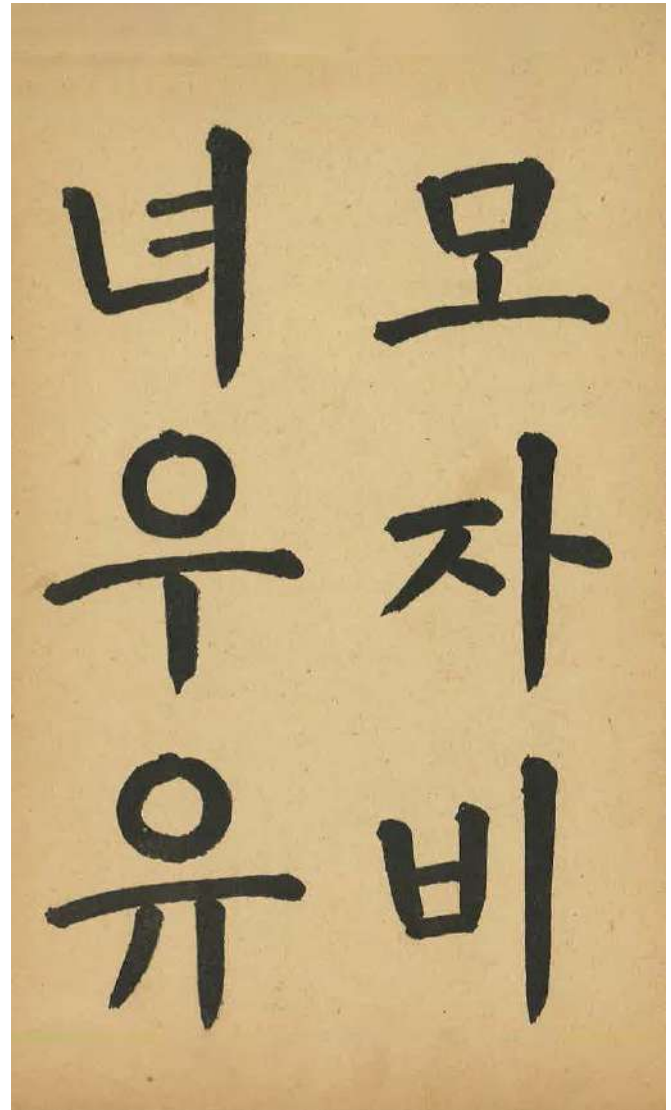 모자비
녀우유